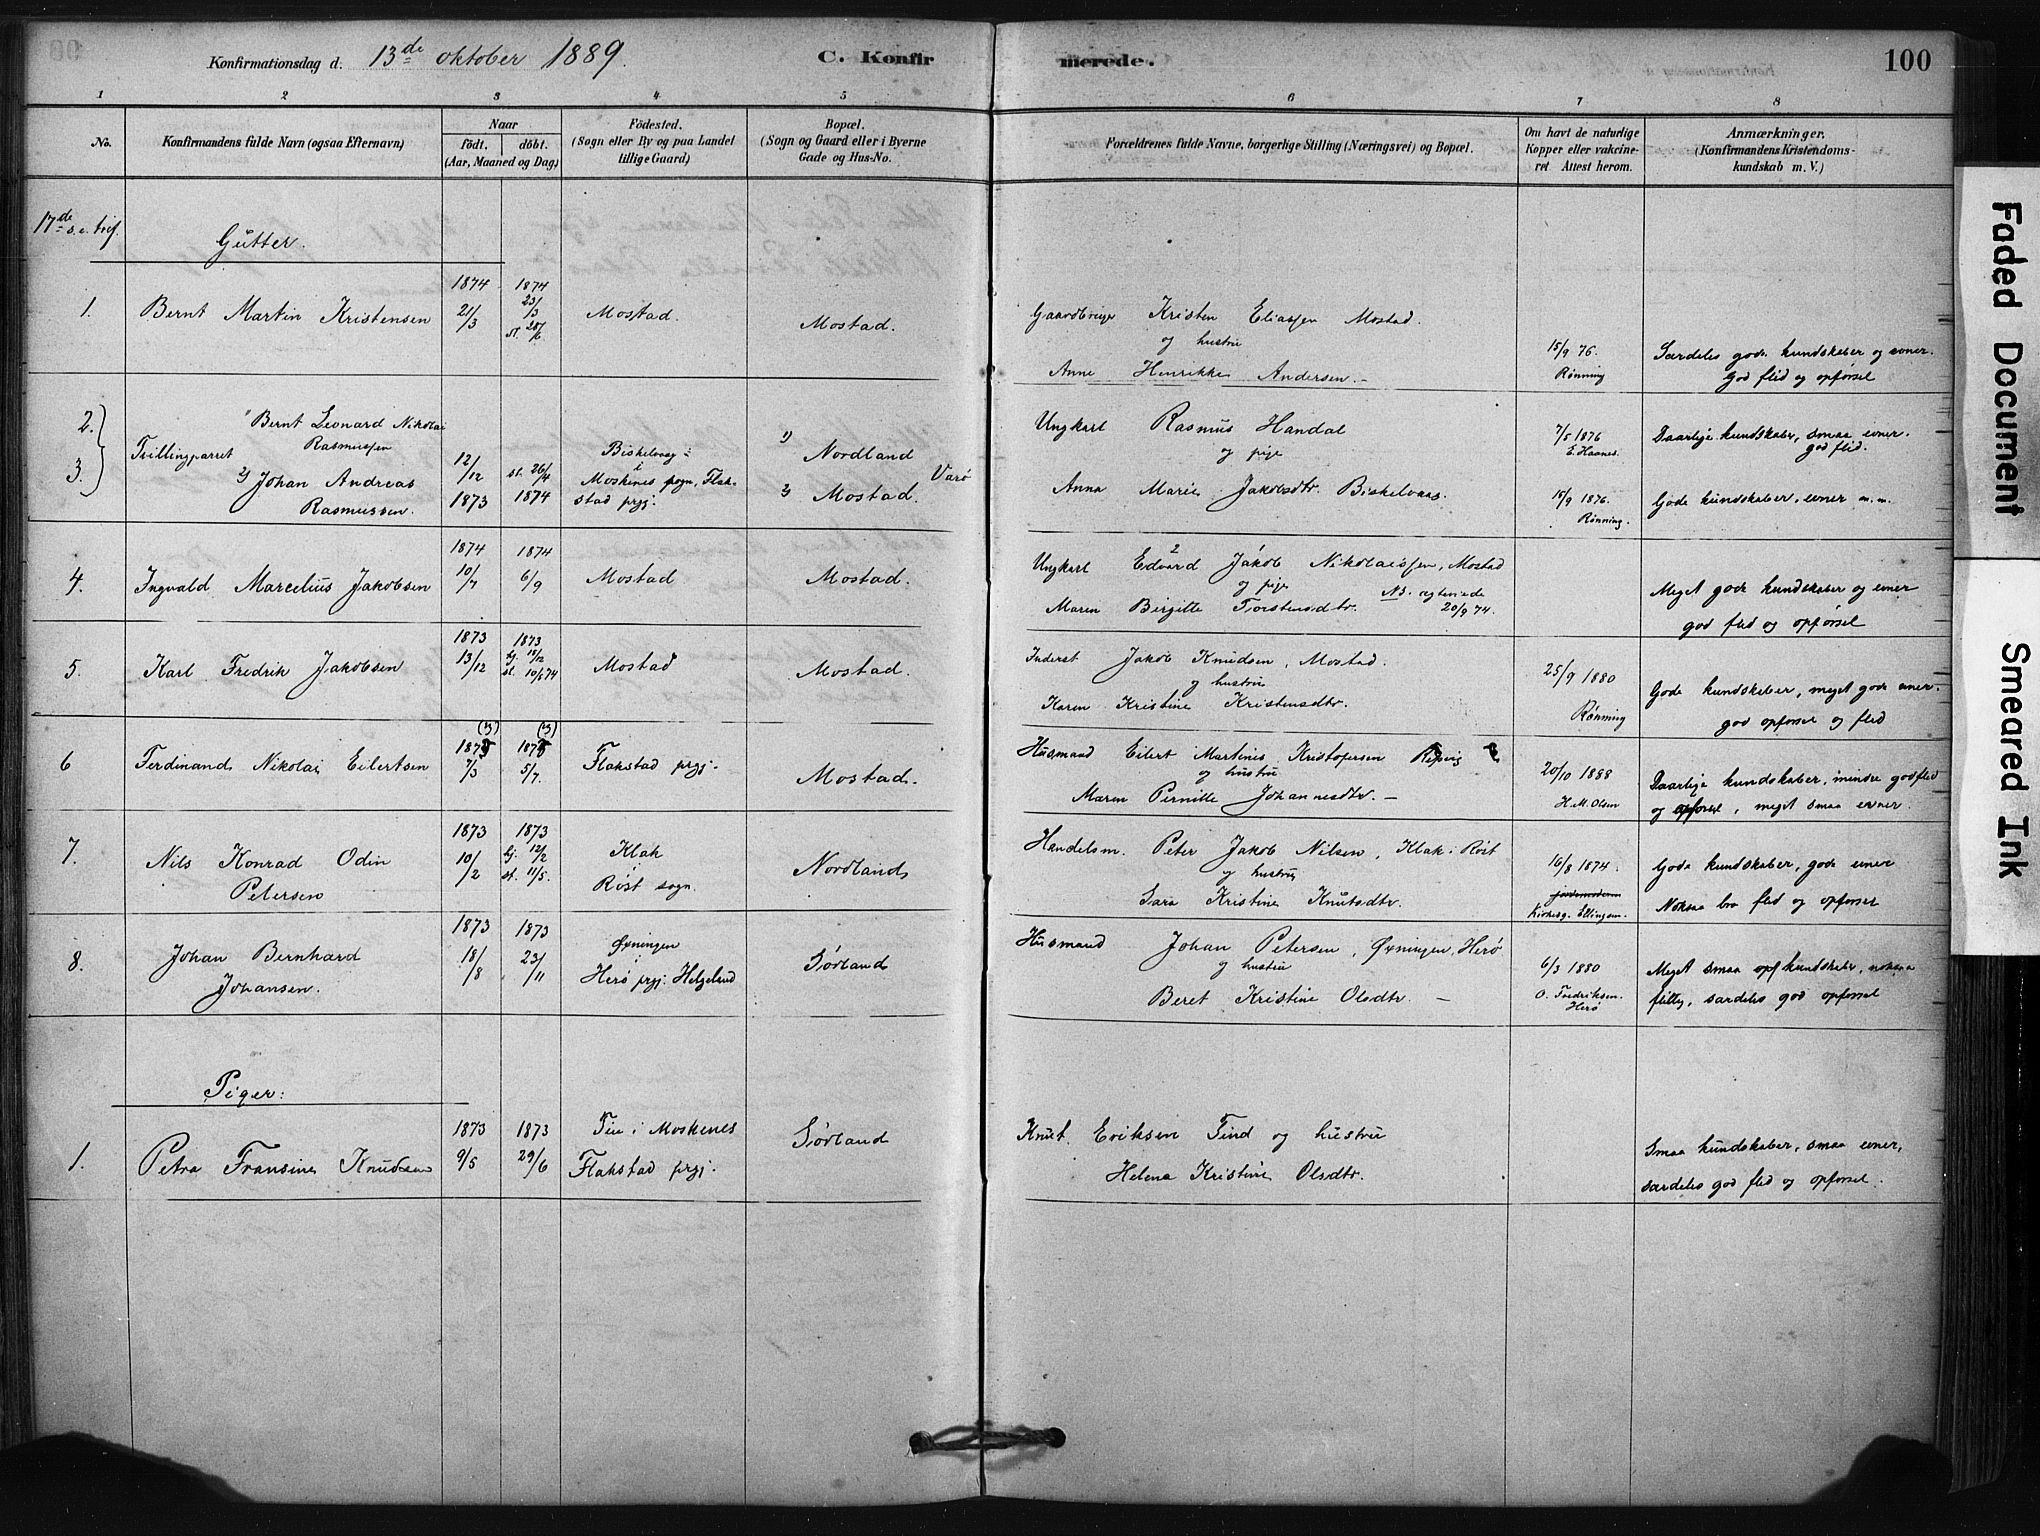 Konfirmationsdag d. 13de oktober 1889.
C. Konfirmerede.
100
1 2 3 4 5 6 7 8
No.
Konfirmandens fulde Navn (ogsaa Efternavn)
Naar
födt. döbt.
(Aar, Maaned og Dag)
Födested.
(Sogn eller By og paa Landet
tillige Gaard)
Bopæl.
(Sogn og Gaard eller i Byerne
Gade og Hus-No.
Forældrenes fulde Navne, borgerlige Stilling (Næringsvei) og Bopæl.
Om havt de naturlige
Kopper eller vakcine-
ret Attest herom.
Anmærkninger.
(Konfirmandens Kristendoms-
kundskab m. V.)
17de s.e. tref.
Gutter.
1. Bernt Martin Kristensen
1874 21/3
1874 23/3 st. 28/6
Mostad.
Mostad.
Gaardbruger Kristen Eliassen Mostad.
og hustru
Anne Henrikke Andersen. –
15/9 76.
Rønning
Særdeles gode kundskaber og evner.
God flid og opførsel
2. 3. Tvillingparret
1) Bernt Leonard Nikolai
Rasmussen
2) Johan Andreas
Rasmussen.
12/12 1873
st. 26/4 1874
Moskenes sogn, Flak-
stad prgj.
1) Nordland
2) Mostad.
Værø
Ungkarl Rasmus Handal
og pige
Anna Marie Jakobsdtr.
7/5 1876
E. Haanes.
Daarlige kundskaber, smaa evner.
god flid.
15/9 1876.
Rønning.
Gode kundskaber, evner m.m.
4. Ingvald Marcelius Jakobsen
1874 10/7
1874 6/9
Mostad
Mostad.
Ungkarl Edvard Jakob Nikolaissen, Mostad
og pige NB. ægteviede
Maren Birgitte Torstensdtr. 20/9 74.
Meget gode kundskaber og evner
god flid og opførsel
5. Karl Fredrik Jakobsen
1873 13/12
1873 hj. 15/12 st. 10/6 74
Mostad
Mostad.
Inderst Jakob Knudsen, Mostad.
og hustru
Karen Kristine Kristensdtr.
25/9 1880
Rønning
Gode kundskaber, meget gode evner.
god opførsel og flid
6 Ferdinand Nikolai Eilertsen
(3) 1875 7/3
(3) 1875 5/7.
Flakstad prgj.
Mostad.
Husmand Eilert Martinus Kristofersen
og hustru
Maren Pernille Johannesdtr. –
20/10 1888
H. M. Olsen
Daarlige kundskaber, mindre god flid
og opførsel, meget smaa evner.
7. Nils Konrad Odin
Petersen
1873 10/2
1873 hj. 12/2 st. 11/5.
Klak
Røst sogn.
Nordland
Handelsm. Peter Jakob Nilsen, Klak i Røst
og hustru
Sara Kristine Knutsdtr.
16/8 1874
jordemoderen
Kirkesg. Ellingsen.
Gode kundskaber, gode evner
Noksaa bra flid og opførsel
8. Johan Bernhard
Johansen.
1873 18/8
1873 23/11
Øxningen
i
Herø prgj. Helgeland
Sørland
Husmand Johan Petersen, Øxningen, Herø
og hustru
Beret Kristine Olsdtr. –
6/3 1880
O. Fredriksen.
Herø
Meget smaa opf kundskaber, noksaa
flittig, særdeles god opførsel
Piger:
1. Petra Fransine Knudsen
1873 9/5
1873 29/6
Tin i Moskenes
Flakstad prgj.
Sørland
Knut Eriksen Tind og hustru
Helena Kristine Olsdtr.
Smaa kundskaber, smaa evner,
særdeles god flid og opførsel.
Faded Document
Smeared Ink